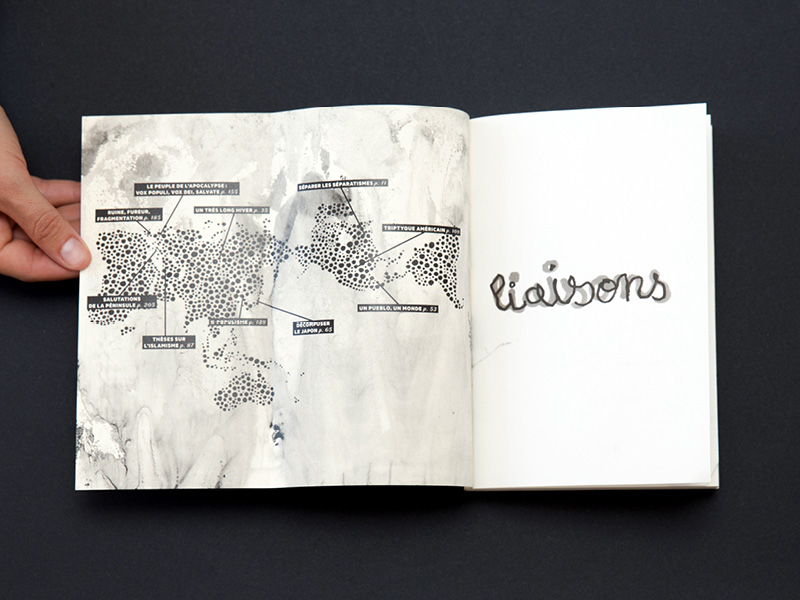 LE PEUPLE DE L'APOCALYPSE :
VOX POPULI, VOX DEI, SALVATE p. 155
SÉPARER LES SÉPARATISMES p. 11
RUINE, FUREUR,
FRAGMENTATION p. 185
UN TRÈS LONG HIVER p. 35
TRIPTYQUE AMÉRICAIN p.
SALUTATIONS
DE LA PÉNINSULE p. 205
UN PUEBLO, UN MONDE p. 53
POPULISME p. 129
DÉCONFUSER
LE JAPON p. 65
THÈSES SUR
L'ISLAMISME p. 87
liaisons